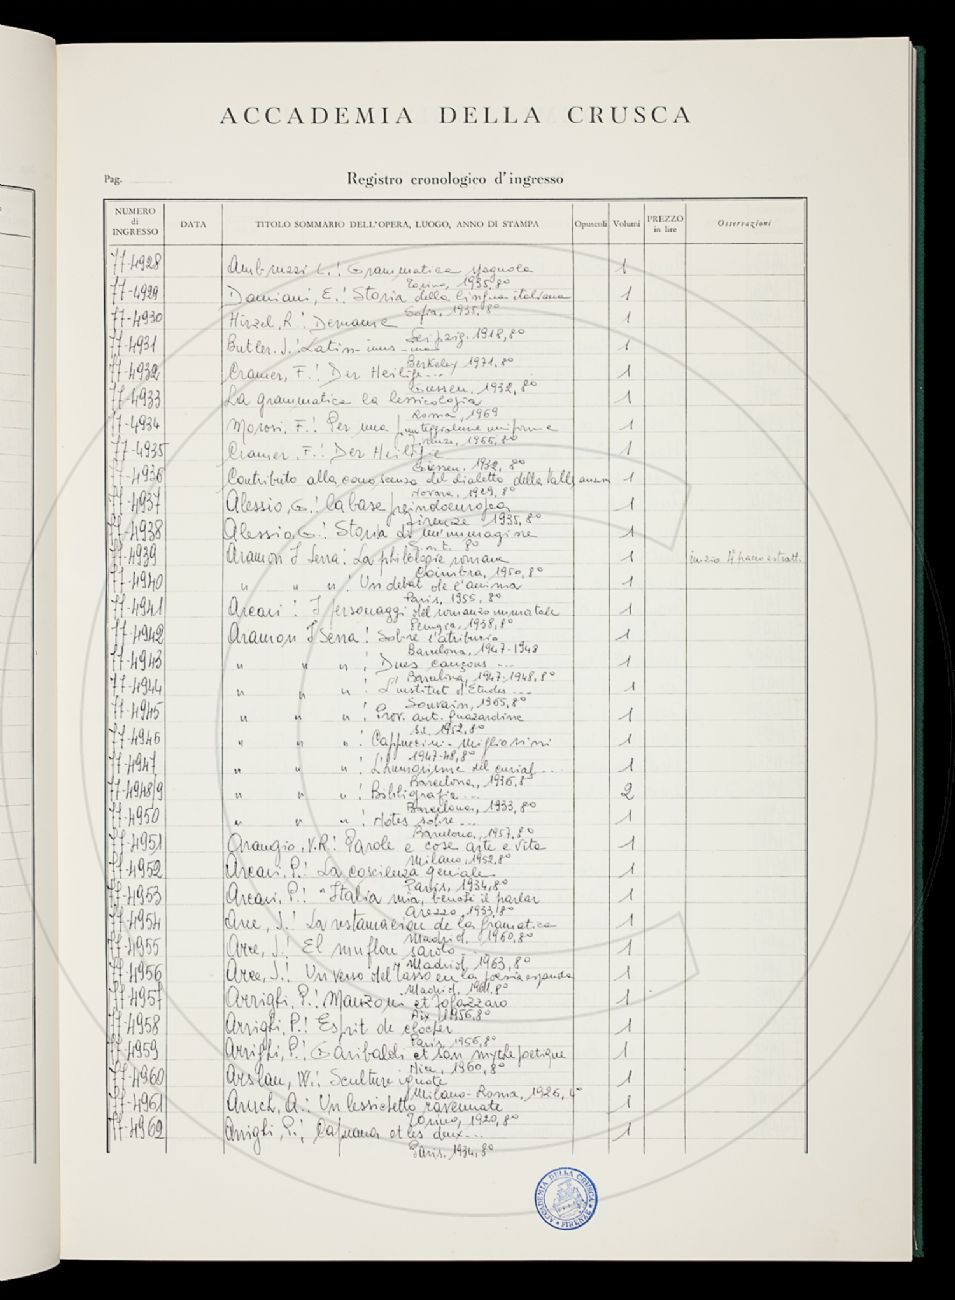 ACCADEMIA DELLA CRUSCA
Pag. Registro cronologico d'ingresso
NUMERO di INGRESSO DATA TITOLO SOMMARIO DELL'OPERA, LUOGO, ANNO DI STAMPA Opuscoli Volumi PREZZO in lire Osservazioni
77-4928 Ambruzzi L.: Grammatica spagnola 1
Torino, 1935, 8°
77-4929 Damiani, E.: Storia della lingua italiana 1
Sofia, 1935, 8°
77-4930 Hirzel, R.: 1
Leipzig, 1918, 8°
77-4931 Butler, J.: Latin -inus -ina 1
Berkeley 1971, 8°
77-4932 Cramer, F.: Der Heilige... 1
Giessen, 1932, 8°
77-4933 La grammatica la lessicologia 1
Roma, 1969
77-4934 Morosi, F.: Per una punteggiatura uniforme 1
Firenze, 1966, 8°
77-4935 Cramer, F.: Der Heilige 1
Giessen, 1932, 8°
77-4936 Contributo alla conoscenza del dialetto della Valle 1
Novara, 1929, 8°
77-4937 Alessio, G.: La base preindoeuropea 1
Firenze 1935, 8°
77-4938 Alessio, G.: Storia di un'immagine 1
s.n.t. 8°
77-4939 Aramon I Serra: La philologie romane 1
Coimbra, 1950, 8°
77-4940 " " " : Un débat de l'anima 1
Paris, 1955, 8°
77-4941 Arcari: I personaggi del romanzo immortale 1
Perugia, 1938, 8°
77-4942 Aramon I Serra: Sobre l'atribució 1
Barcelona, 1947-1948
77-4943 " " " : Dues cançons ... 1
Barcelona, 1947-1948, 8°
77-4944 " " " : L'institut d'Etudes ... 1
Louvain, 1965, 8°
77-4945 " " " : Prov. ant. 1
s.l. 1952, 8°
77-4946 " " " : Cappuccini - Migliorini 1
1947-48, 8°
77-4947 " " " : L'humorisme del ... 1
Barcelona, 1936, 8°
77-4948/9 " " " : Bibliografia ... 2
Barcelona, 1933, 8°
77-4950 " " " : Notes sobre ... 1
Barcelona, 1957, 8°
77-4951 Arangio, V.R.: Parole e cose arte e vita 1
Milano, 1952, 8°
77-4952 Arcari, P.: La coscienza geniale 1
Paris, 1934, 8°
77-4953 Arcari, P.: "Italia mia, benché il parlar 1
Arezzo, 1933, 8°
77-4954 Arce, J.: La restauracion de la gramatica 1
Madrid, 1960, 8°
77-4955 Arce, J.: El muflon sardo ... 1
Madrid, 1963, 8°
77-4956 Arce, J.: Un verso del Tasso en la poesia española 1
Madrid, 1961, 8°
77-4957 Arrighi, P.: Manzoni et Fogazzaro 1
Aix, 1956, 8°
77-4958 Arrighi, P.: Esprit de clocher 1
Paris, 1956, 8°
77-4959 Arrighi, P.: Garibaldi et son mythe poetique 1
Nice, 1960, 8°
77-4960 Arslan, W.: Sculture ignote 1
Milano-Roma, 1926, 4°
77-4961 Aruch, A.: Un lessichetto ravennate 1
Torino, 1920, 8°
77-4962 Arrighi, P.: Capuana et les deux ... 1
Paris, 1934, 8°
ACCADEMIA DELLA CRUSCA FIRENZE